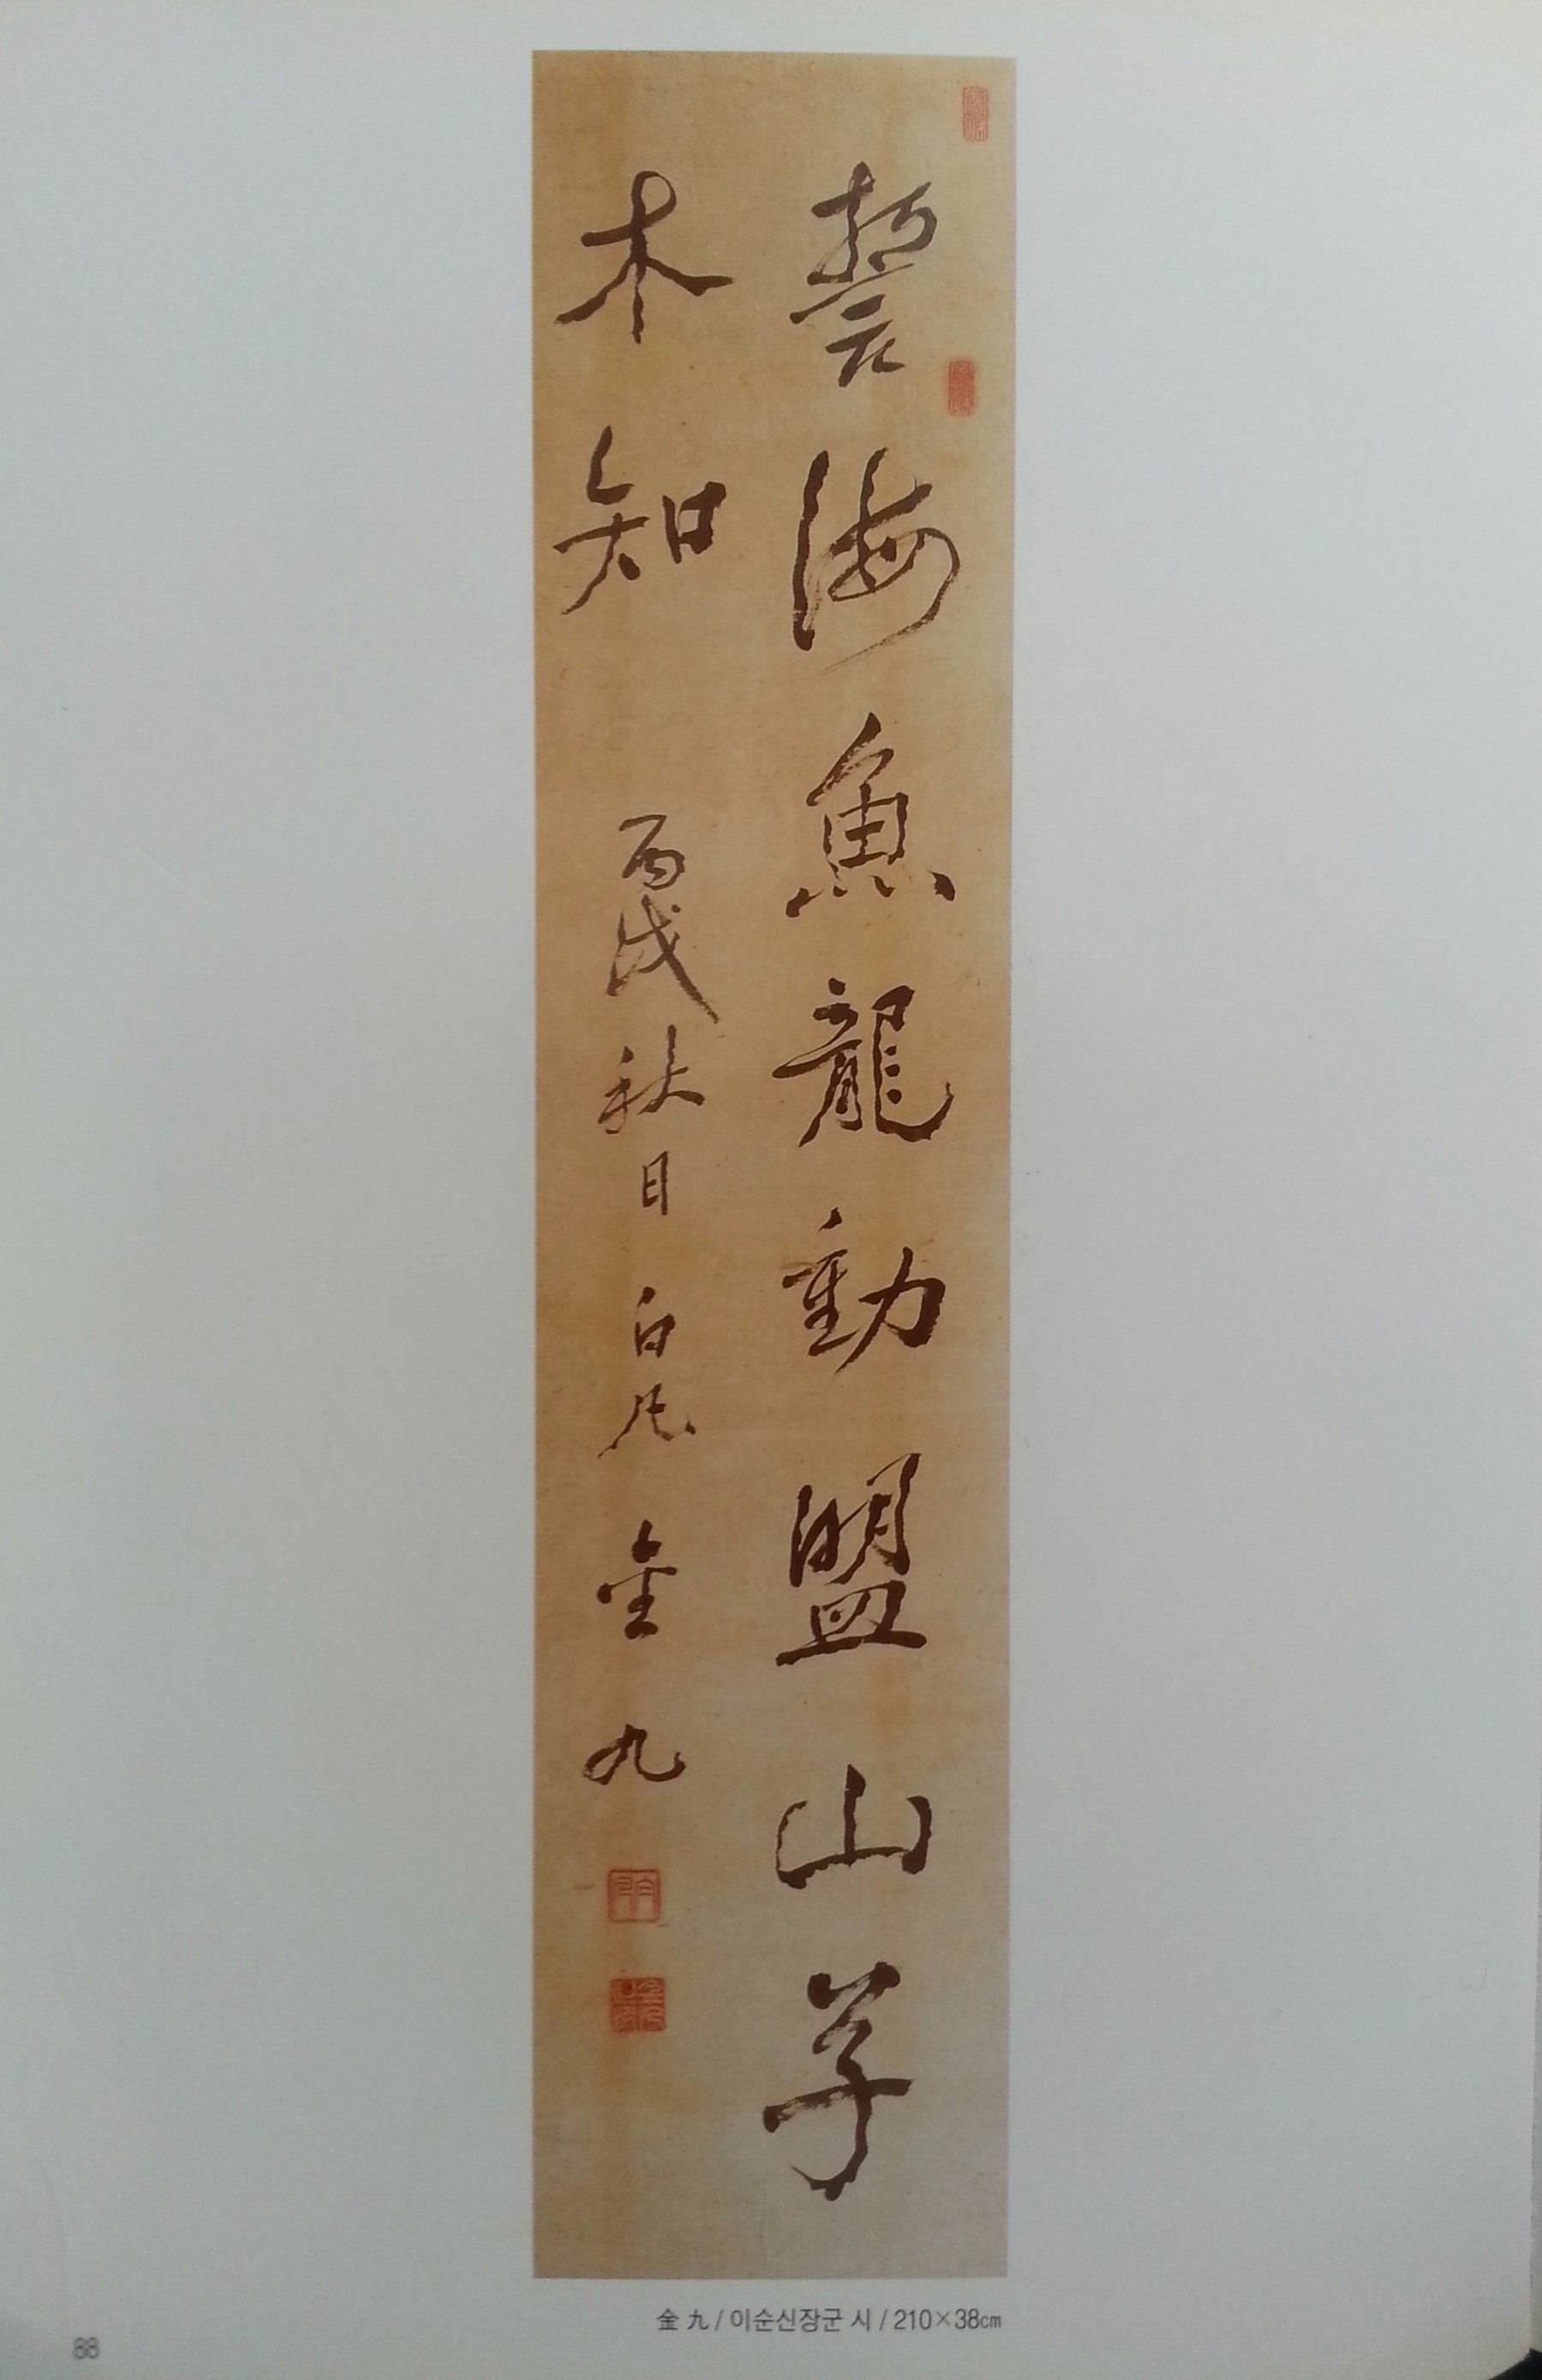 誓海魚龍動盟山草
木知
丙戌秋日 白凡 金九
金 九 / 이순신장군 시 / 210×38cm
88